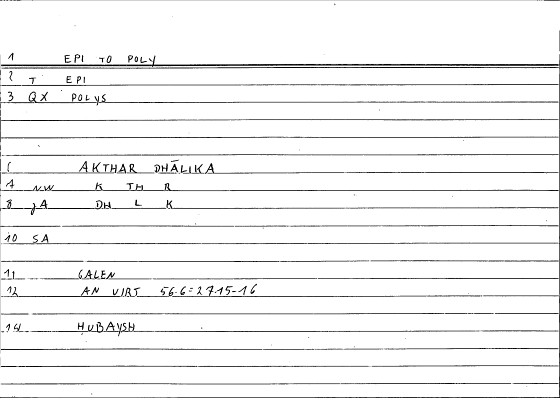 1 EPI TO POLY
2 T EPI
3 QX POLYS
6 AKTHAR DHĀLIKA
7 NW K TH R
8 JA DH L K
10 SA
11 GALEN
12 AN VIRT 56.6=27.15-16
14 ḤUBAYSH